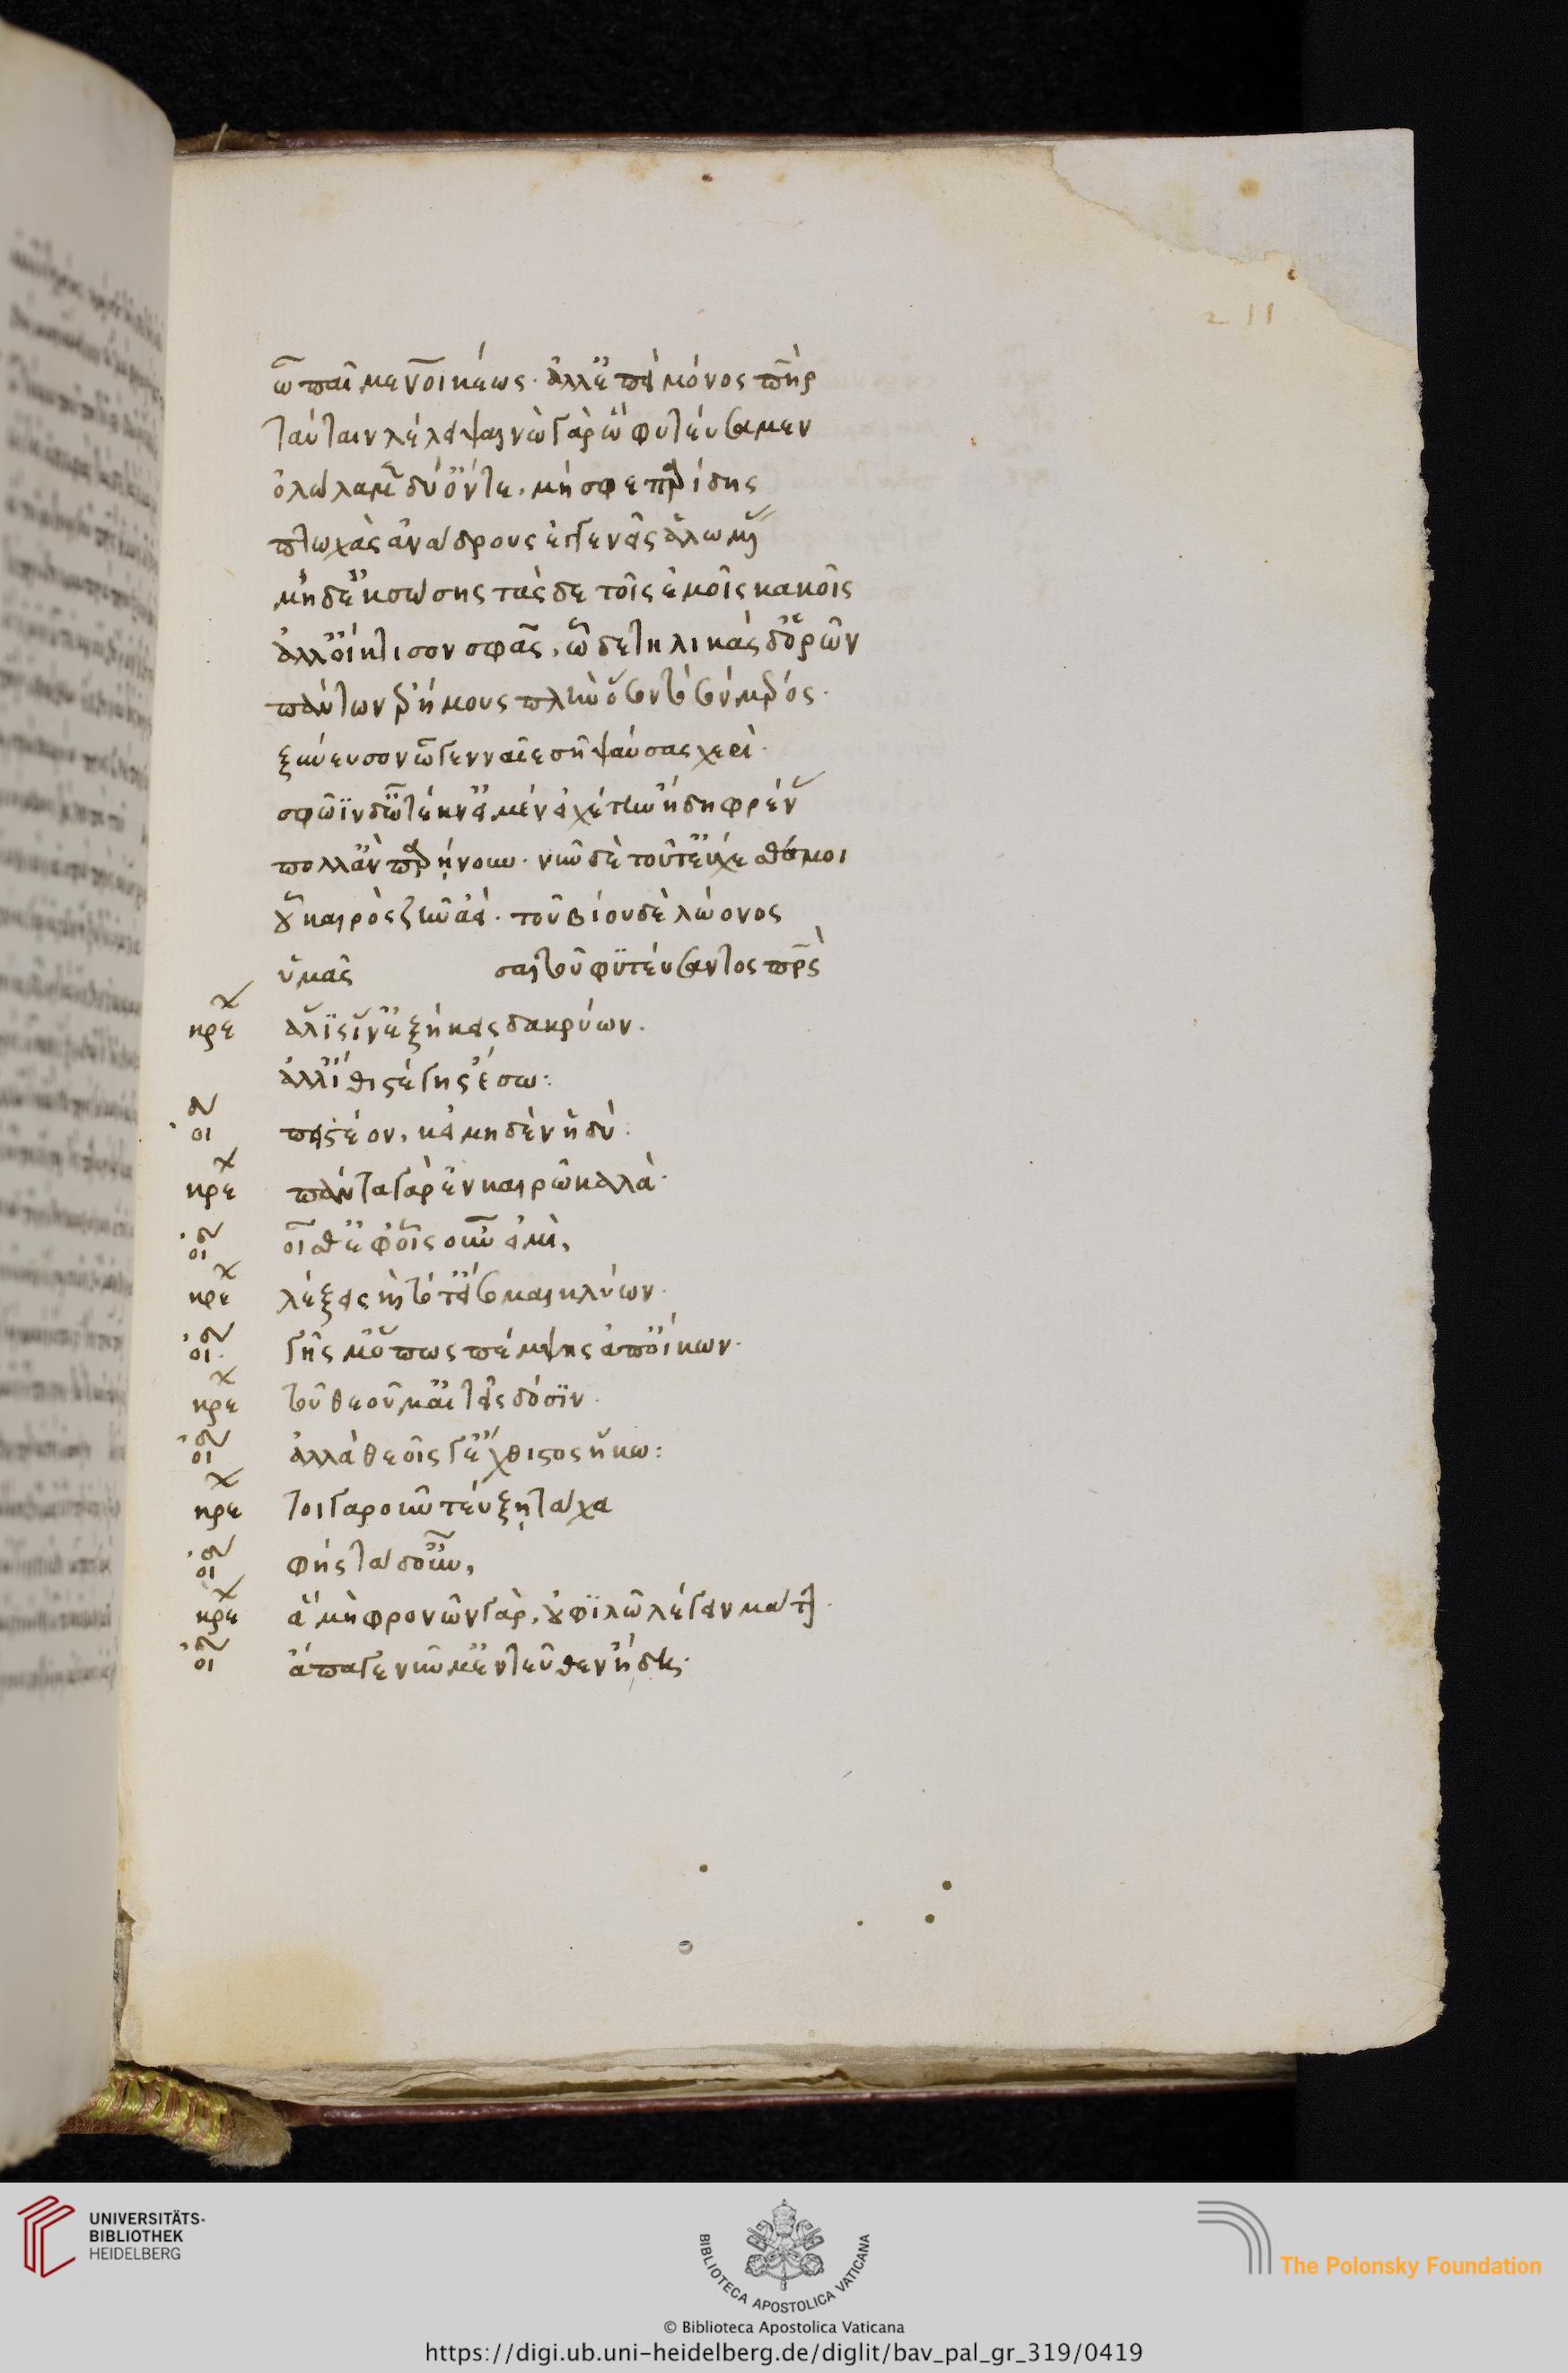 211
ὦ παῖ μενοικέως· ἀλλ' ἐπεὶ μόνος πὴρ
ταύταιν λέλειψαι νὼ γὰρ ὣ φυτεύσαμεν
ὀλώλαμεν δύ' ὄντε, μή σφε παρίδης
πτωχὰς ἀνάδρους ἐγγενεῖς ἀλωμένας
μηδ' ἐκσώσης τὰς δε τοῖς ἐμοῖς κακοῖς
ἀλλ' οἴκτισον σφᾶς, ὧδε τηλικάσδ' ὁρῶν
πάντων ἐρήμους πλὴν ὅσον τὸ σὸν μέρος·
ξύνευσον ὦ γενναῖε σῇ ψαύσας χερί·
σφῶϊν δ' ὦ τέκν' εἰ μὲν εἰχέτην ἤδη φρένας
πολλ' ἂν παρῄνουν· νῦν δὲ τοῦτ' εὔχεσθέ μοι
οὗ καιρὸς ζῆν ἀεί· τοῦ βίου δὲ λώονος
ὑμᾶς σαι τοῦ φυτεύσαντος πρς
κρε ἅλις ἵν' ἐξήκεις δακρύων.
ἀλλ' ἴθι στέγης ἔσω:
οιδ πειστέον, κεἰ μηδὲν ἡδύ:
κρε πάντα γὰρ ἐν καιρῶ καλά·
οιδ οἶσθ' ἐφ' οἷς οὖν εἶμι,
κρε λέξεις καὶ τότ' εἴσομαι κλύων·
οιδ γῆς μ' ὅπως πέμψης ἀποίκων·
κρε τοῦ θεοῦ μ' αἰτεῖς δόσιν·
οιδ ἀλλὰ θεοῖς γ' ἔχθιστος ἥκω:
κρε τοιγαροῦν τεύξῃ τάχα
οιδ φὴς τάδ' οὖν,
κρε ἃ μὴ φρονῶν γὰρ, οὐ φιλῶ λέγειν μάτην·
οιδ ἄπαγέ νυν μ' ἐντεῦθεν ἤδη·
UNIVERSITÄTS-
BIBLIOTHEK
HEIDELBERG
BIBLIOTECA APOSTOLICA VATICANA
The Polonsky Foundation
© Biblioteca Apostolica Vaticana
https://digi.ub.uni-heidelberg.de/diglit/bav_pal_gr_319/0419